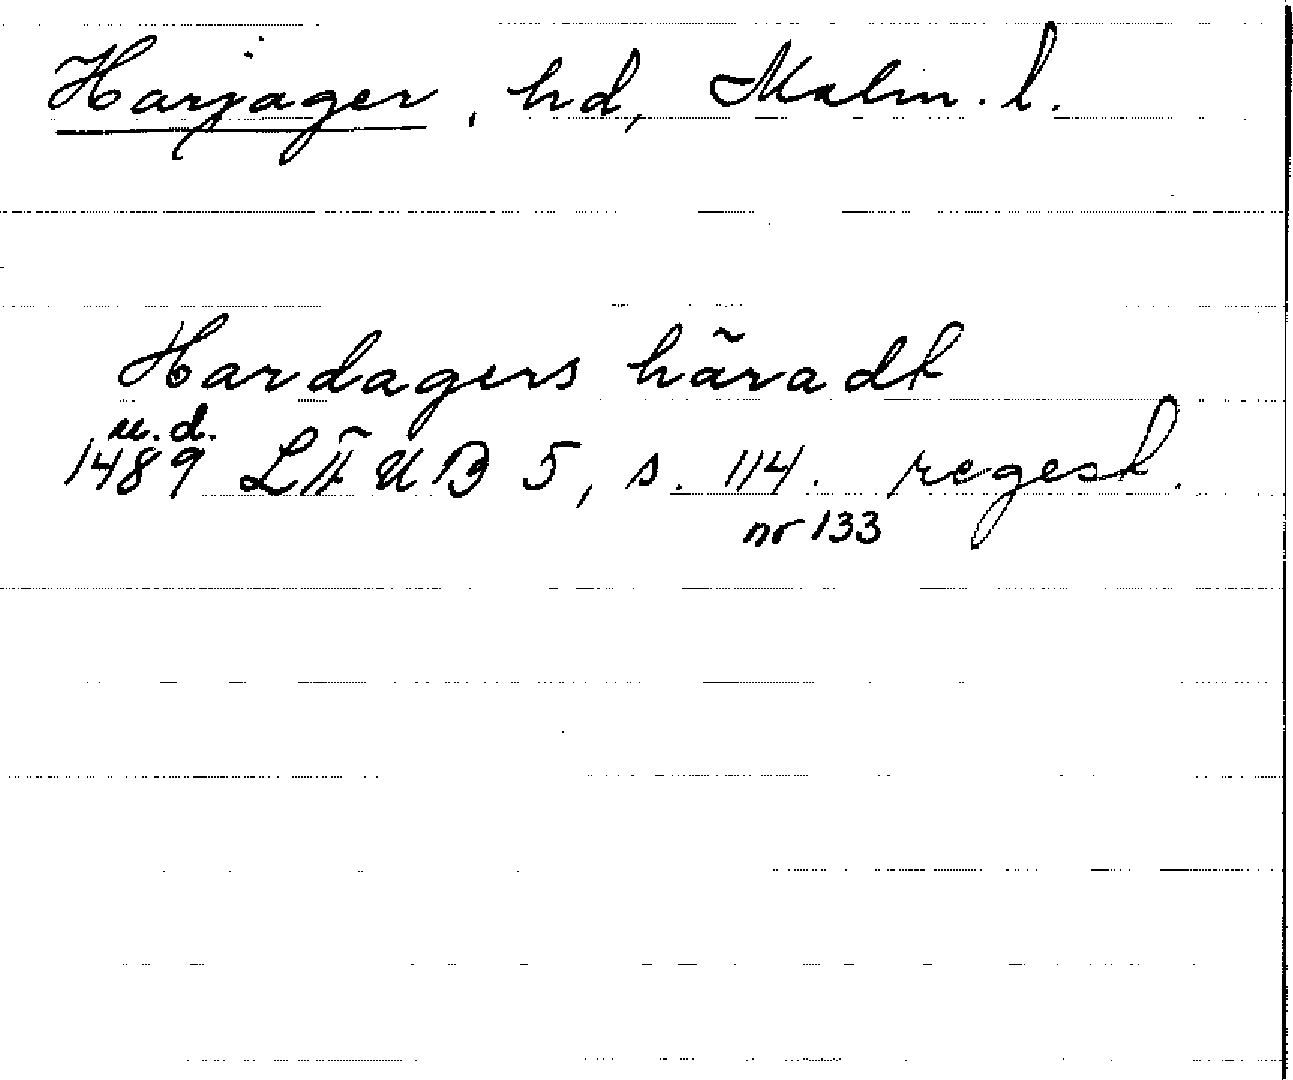 Harjäger, hd, Malm. l.
Hardagers häradt
u.d.
1489 LÄUB 5, s. 114. regest.
nr 133